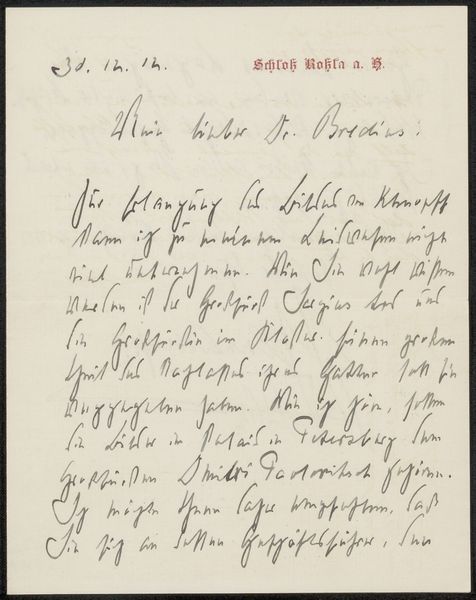 30. 12. 12.
Schloß Roßla a. H.
Mein lieber Dr. Bredius!
Für Erlangung des Bildes von Knupff
kann ich zu meinem Leidwesen nichts
unternehmen. Wie Sie wohl wissen
werden ist der Großfürst Sergius tod und
die Großfürstin im Kloster. Einen großen
Theil des Nachlasses ihres Gatten soll sie
weggegeben haben. Wie ich höre, sollen
die Bilder im Palais in Petersburg dem
Großfürsten Dmitri Pavlovitsch gehören.
Ich möchte Ihnen daher empfehlen, daß
Sie sich an dessen Geschäftsführer, den